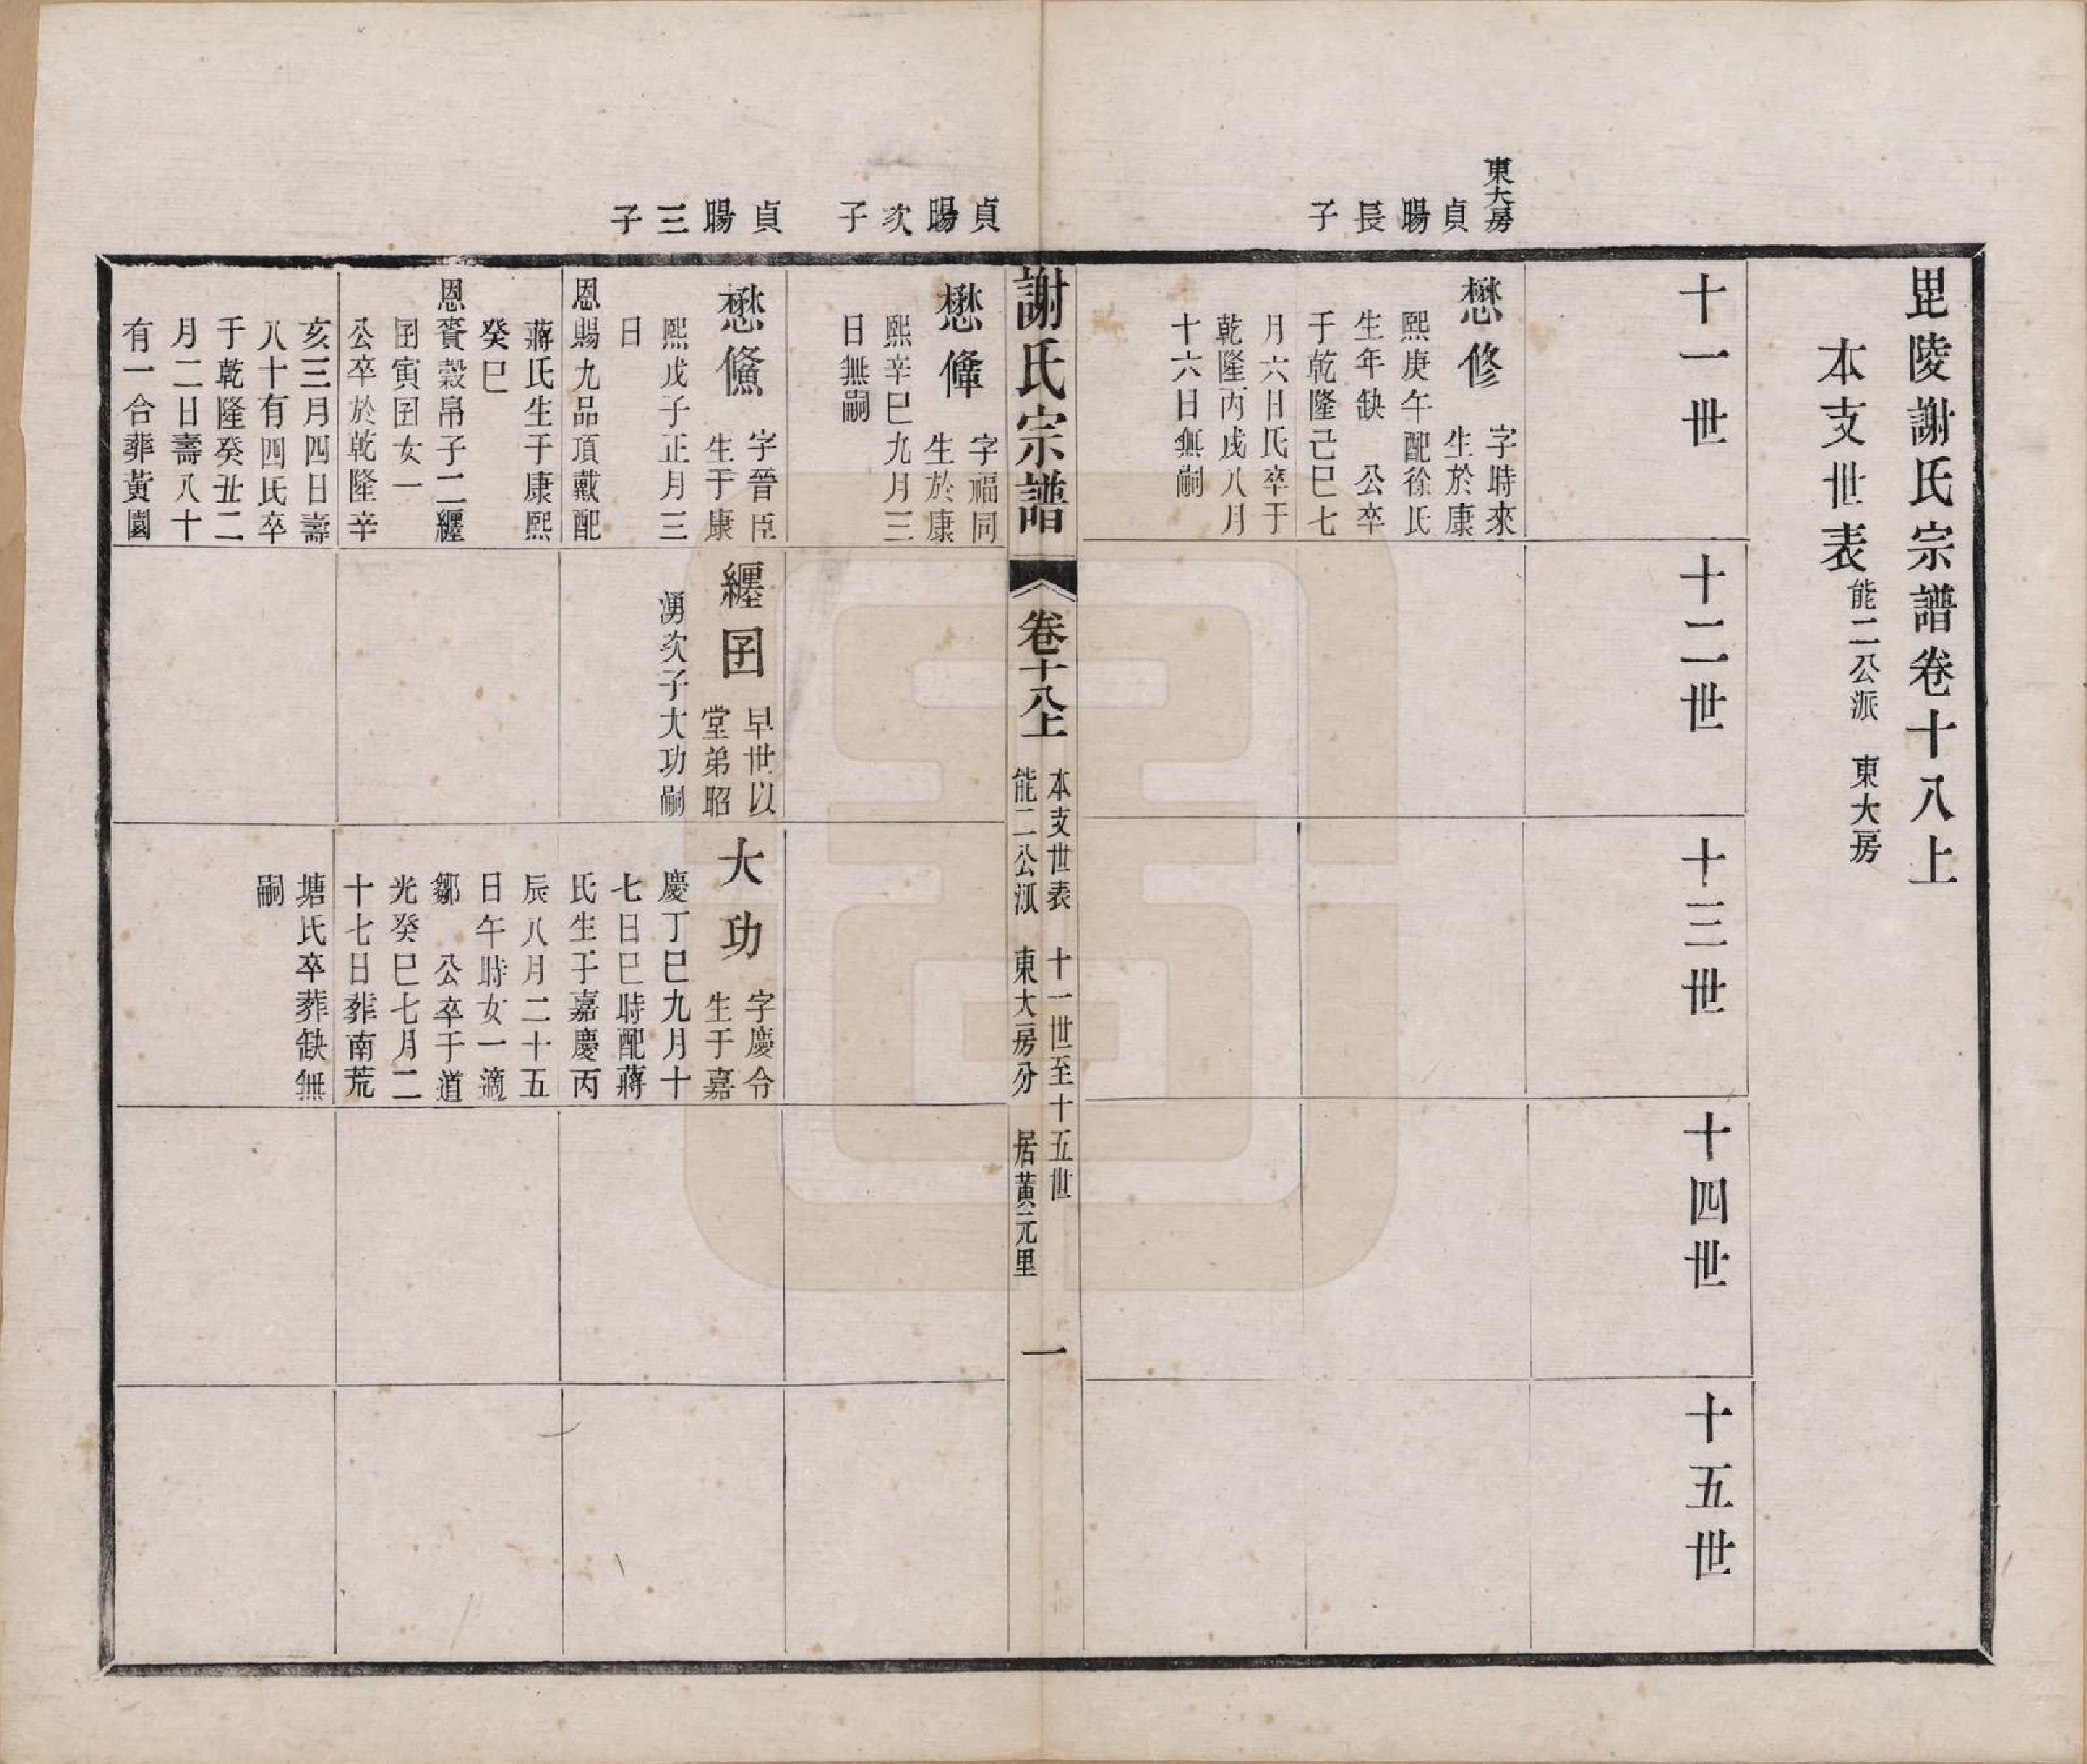 毘陵謝氏宗譜卷十八上
本支世表
能二公派 東大房
十一世
十二世
十三世
十四世
十五世
東大房
貞
暘
長
子
懋修
字時來
生於康
熙庚午配徐氏
生年缺 公卒
于乾隆己巳七
月六日氏卒于
乾隆丙戌八月
十六日無嗣
謝氏宗譜
卷十八上
本支世表 十一世至十五世
能二公派 東大房分 居黃元里
一
貞
暘
次
子
懋偆
字福同
生於康
熙辛巳九月三
日無嗣
貞
暘
三
子
懋
字晉臣
生于康
熙戊子正月三
日
恩賜九品頂戴配
蔣氏生于康熙
癸巳
恩賚榖帛子二纒
囝寅囝女一
公卒於乾隆辛
亥三月四日壽
八十有四氏卒
于乾隆癸丑二
月二日壽八十
有一合葬黃園
纒囝
早世以
堂弟昭
湧次子大功嗣
大功
字慶令
生于嘉
慶丁巳九月十
七日巳時配蔣
氏生于嘉慶丙
辰八月二十五
日午時女一適
鄒 公卒于道
光癸巳七月二
十七日葬南荒
塘氏卒葬缺無
嗣